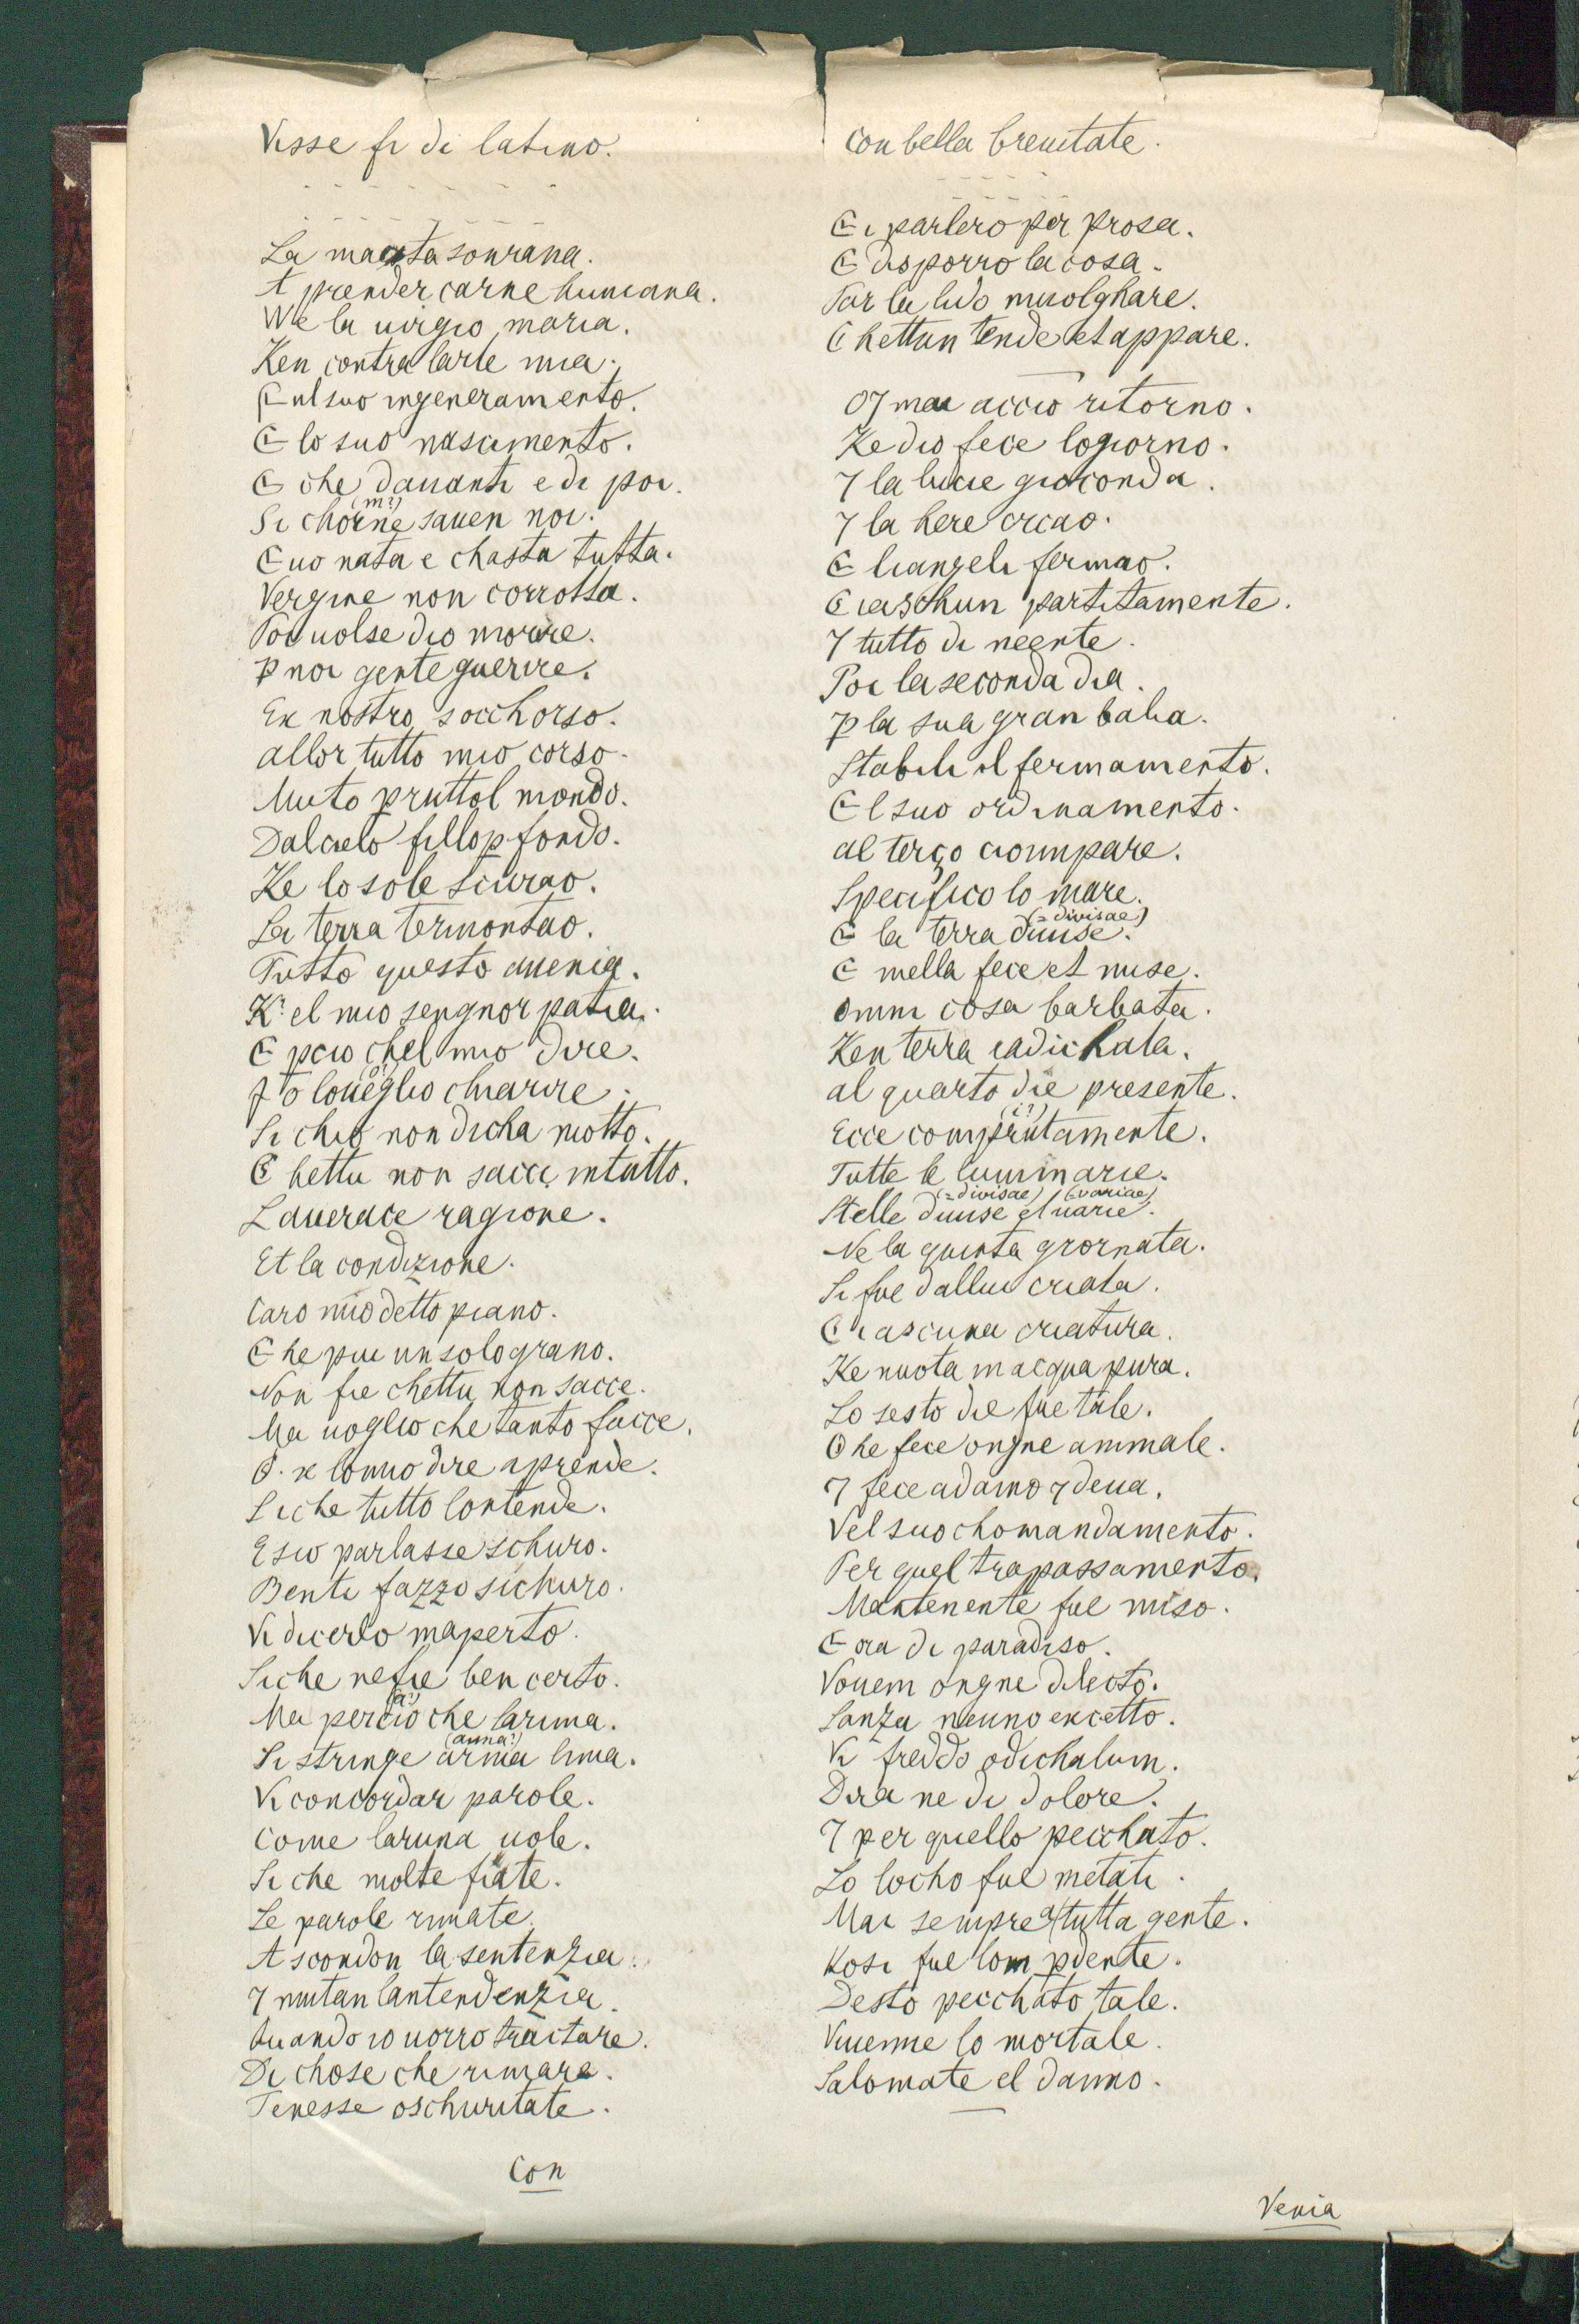 Visse fi di latino.
La maesta sourana.
A prender carne humana.
Ne la uirgio maria.
Ken contra larte mia.
E nl suo ingeneramento.
E lo suo nascimento.
E che dauanti e di poi.
(m?)
Si chorne sauen noi.
E uo nata e chasta tutta.
Vergine non corrotta.
Poi uolse dio morire.
P noi gente guerire.
En nostro socchorso.
allor tutto mio corso.
Muto pruttol mondo.
Dal cielo fillop fondo.
Ke lo sole scurao.
La terra termontao.
Tutto questo auenia.
K' el mio sengnor patia.
E pcio chel mio dire.
Io loueglio chiarire.
Si chio non dicha motto.
E hettu non sacci intutto.
Lauerace ragione.
Et la condizione.
Caro mio detto piano.
E he pur un solo grano.
Non fie chettu non sacce.
Ma uoglio che tanto facce.
lomio dire aprende.
Si che tutto lontende.
E sio parlasse schuro.
Benti fazzo sichuro.
Vi dicerlo maperto.
Siche nefie ben certo.
(a?)
Ma percio che larima.
(anna?)
Si stringe arma lima.
Vi concordar parole.
Come laruna uole.
Si che molte fiate.
Le parole rimate.
Ascondon la sentenzia.
7 mutan lantendenzia.
Quando io uorro tractare.
Di chose che rimare.
Tenesse oschuritate.
Con
Con bella breuitate.
E i parlero per prosa.
E disporro la cosa.
Par la lido muolghare.
C hettun tende et appare.
07 mai accio ritorno.
Ke dio fece lo giorno.
7 la lucie gioconda.
7 la here creao.
E liangeli fermao.
Ciaschun partitamente.
7 tutto di neente.
Poi la seconda dia.
P la sua gran balia.
Stabili il fermamento.
E l suo ordinamento.
al terço cioumpare.
Specifico lo mare.
(= divisae)
E la terra diuise.
E mella fece et mise.
omni cosa barbata.
Ken terra radichata.
al quarto die presente.
(i?)
Ecce comprutamente.
Tutte le luminarie.
(= divisae) (= variae)
Stelle diuise et uarie.
Ne la quinta giornata.
Si fue dallui criata.
Ciascuna criatura.
Ke nuota in acqua pura.
Lo sesto die fue tale.
Che fece ongne animale.
7 fece adamo 7 deua.
Vel suo chomandamento.
Per quel trapassamento.
Mantenente fue miso.
E ora di paradiso.
Vouem ongne dilecto.
Sanza neuno excetto.
Vi freddo odichalum.
Dira ne di dolore.
7 per quello pecchato.
Lo locho fue metati.
Mai sempre a tutta gente.
Kosi fue lom pdente.
Desto pecchato tale.
Viuenne lo mortale.
Salomate el danno.
Venia